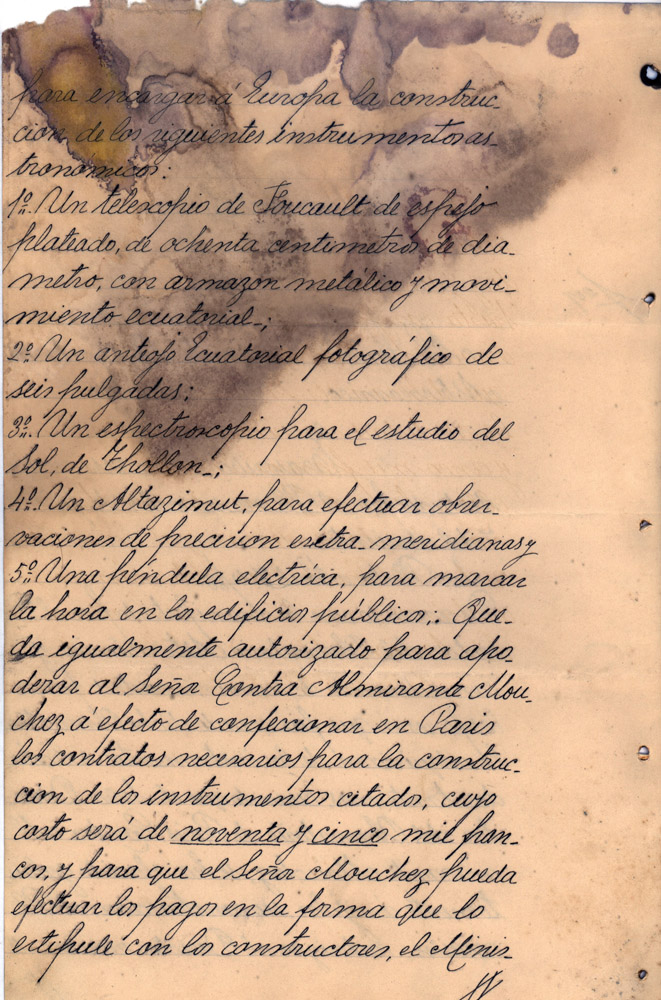 para encargar á Europa la construc-
cion de los siguientes instrumentos as-
tronomicos:
1º Un telescopio de Foucault de espejo
plateado, de ochenta centimetros de dia-
metro, con armazon metálico y movi-
miento ecuatorial-;
2º Un anteojo Ecuatorial fotográfico de
seis pulgadas;
3º Un espectroscopio para el estudio del
Sol, de Thollon-;
4º Un Altazimut, para efectuar obser-
vaciones de precision extra-meridianas y
5º Una péndula electrica, para marcar
la hora en los edificios públicos;. Que-
da igualmente autorizado para apo-
derar al Señor Contra Almirante Mou-
chez á efecto de confeccionar en Paris
los contratos necesarios para la construc-
cion de los instrumentos citados, cuyo
costo será de noventa y cinco mil fran-
cos, y para que el Señor Mouchez pueda
efectuar los pagos en la forma que lo
estipule con los constructores, el Minis-